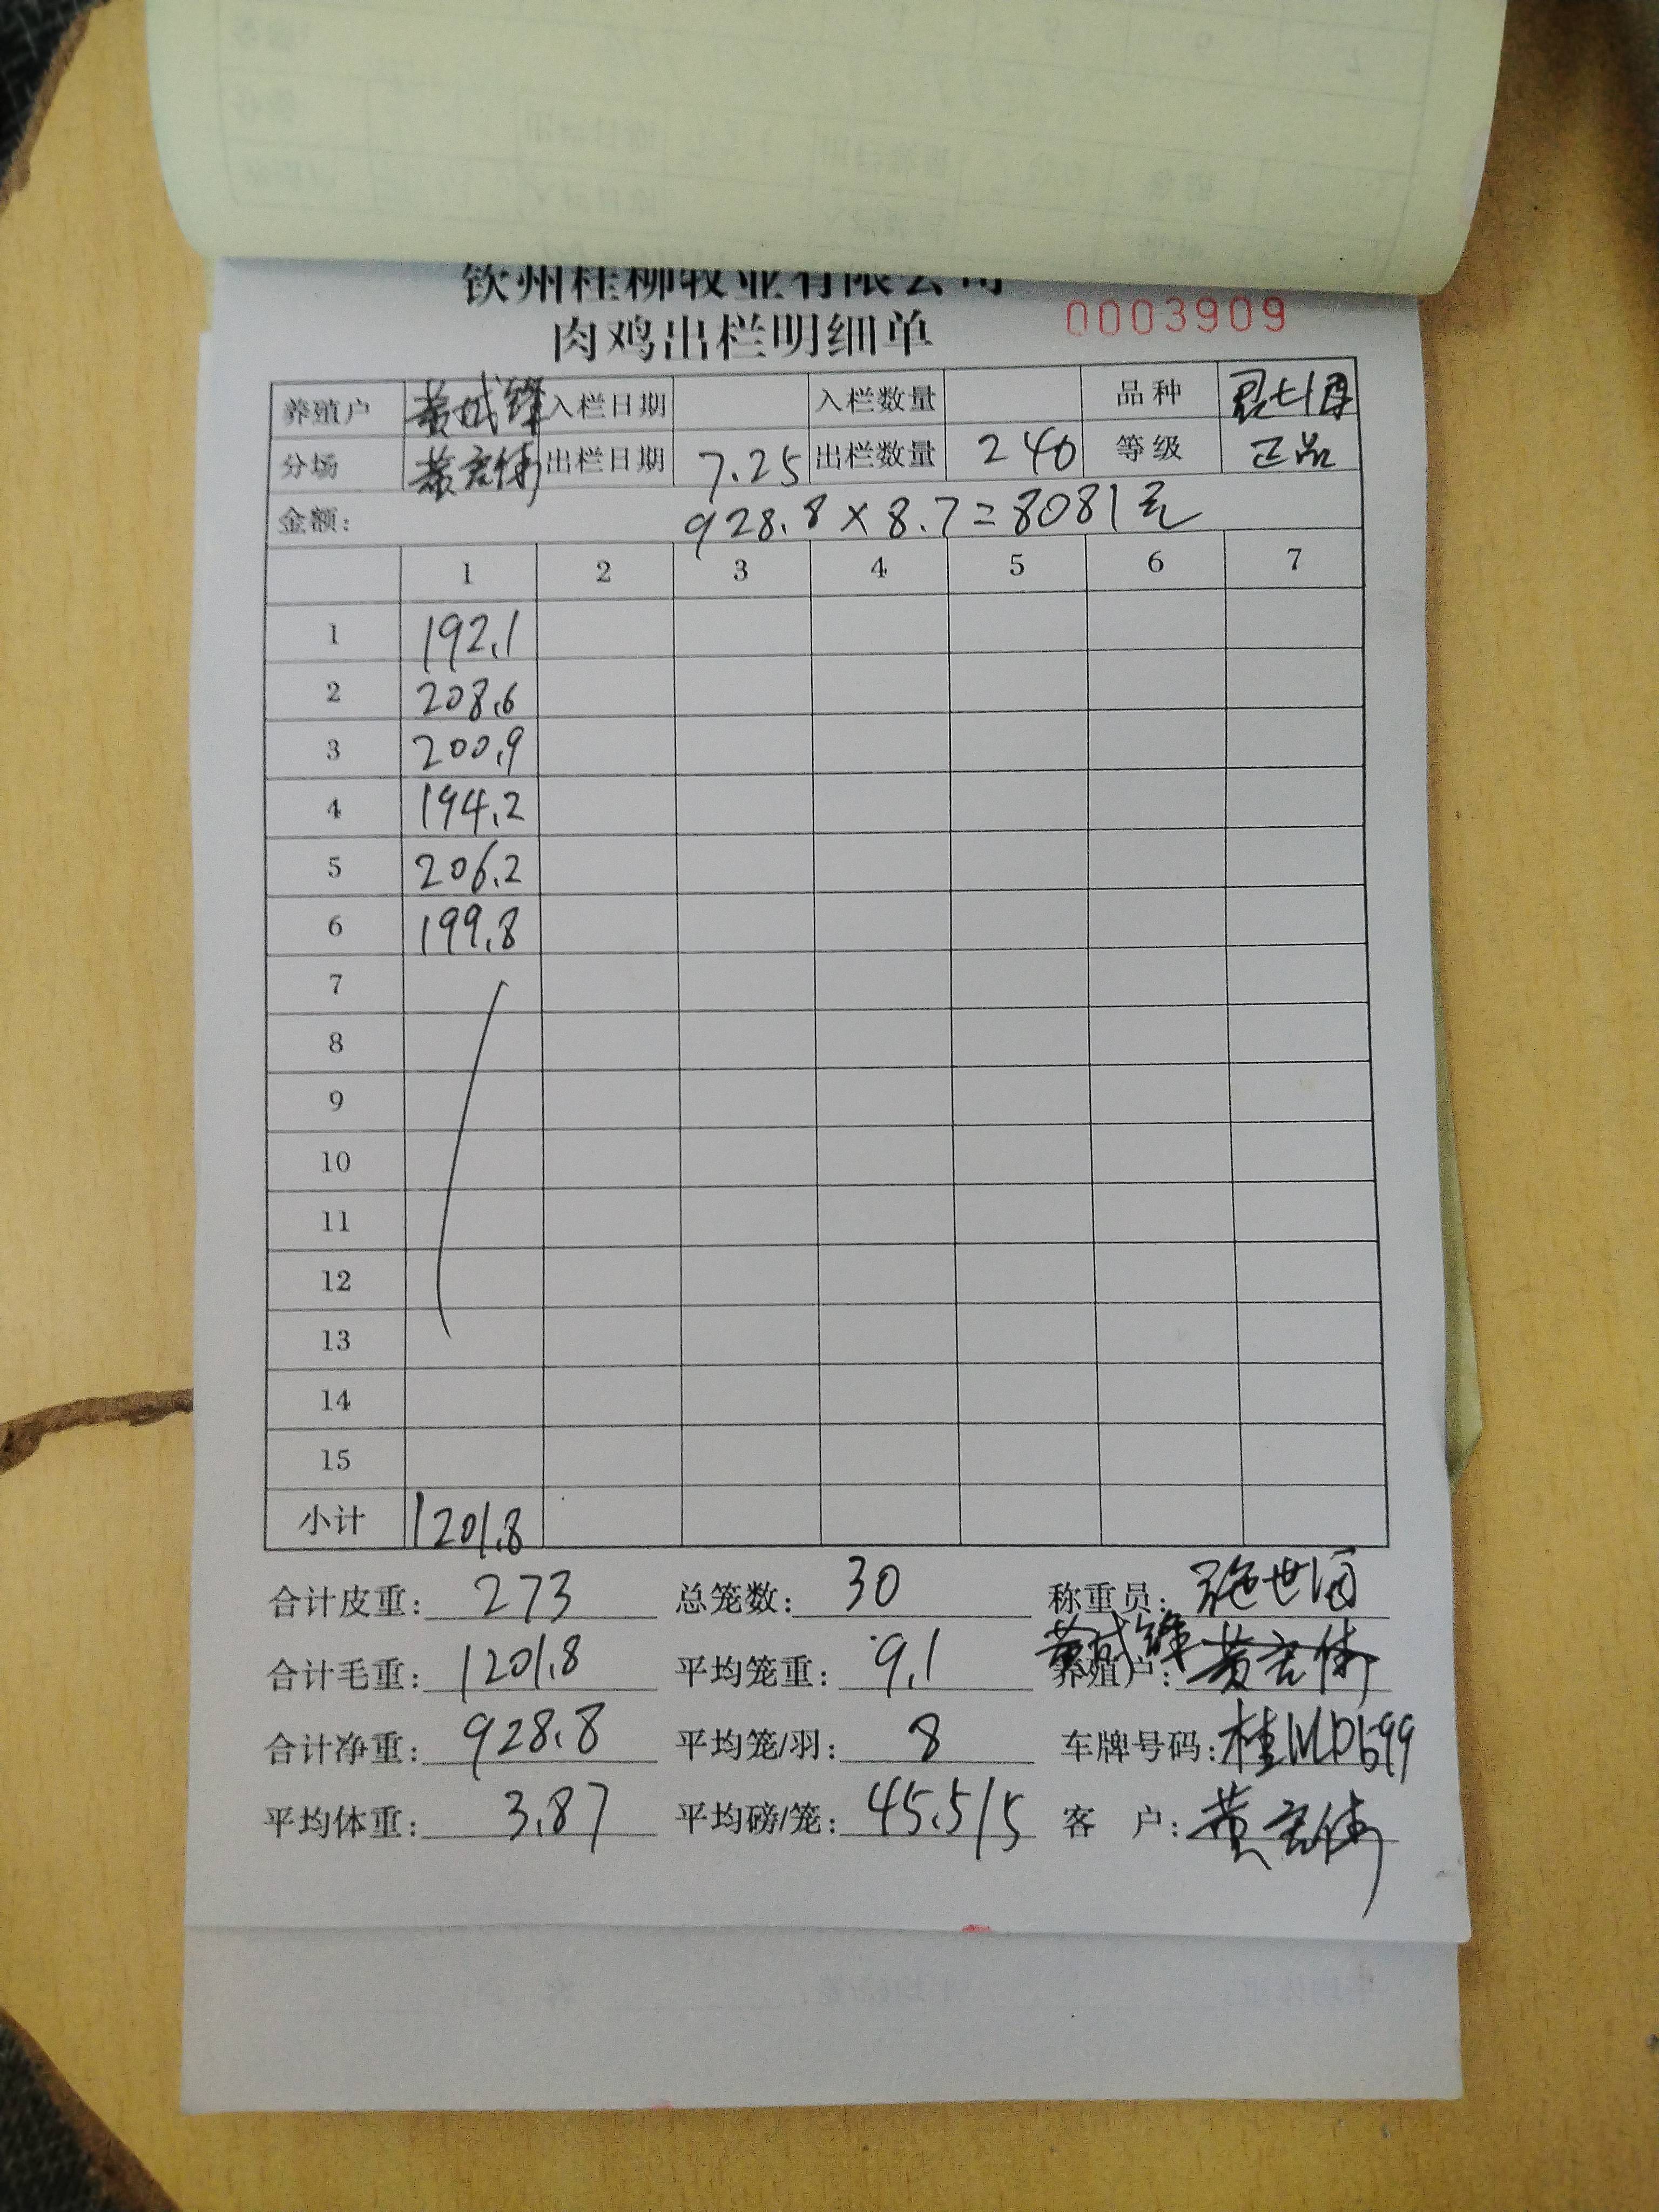 钦州桂柳牧业有限公司
肉鸡出栏明细单 0003909
养殖户 黄成锋 入栏日期 入栏数量 品种
分场 黄宏伟 出栏日期 7.25 出栏数量 240 等级 正品
金额: 928.8×8.7=8081元
1 2 3 4 5 6 7
1 192.1
2 208.6
3 200.9
4 194.2
5 206.2
6 199.8
7
8
9
10
11
12
13
14
15
小计 1201.8
合计皮重: 273 总笼数: 30 称重员:
合计毛重: 1201.8 平均笼重: 9.1 养殖户: 黄成锋 黄宏伟
合计净重: 928.8 平均笼/羽: 8 车牌号码:
平均体重: 3.87 平均磅/笼: 45.5/5 客 户: 黄宏伟